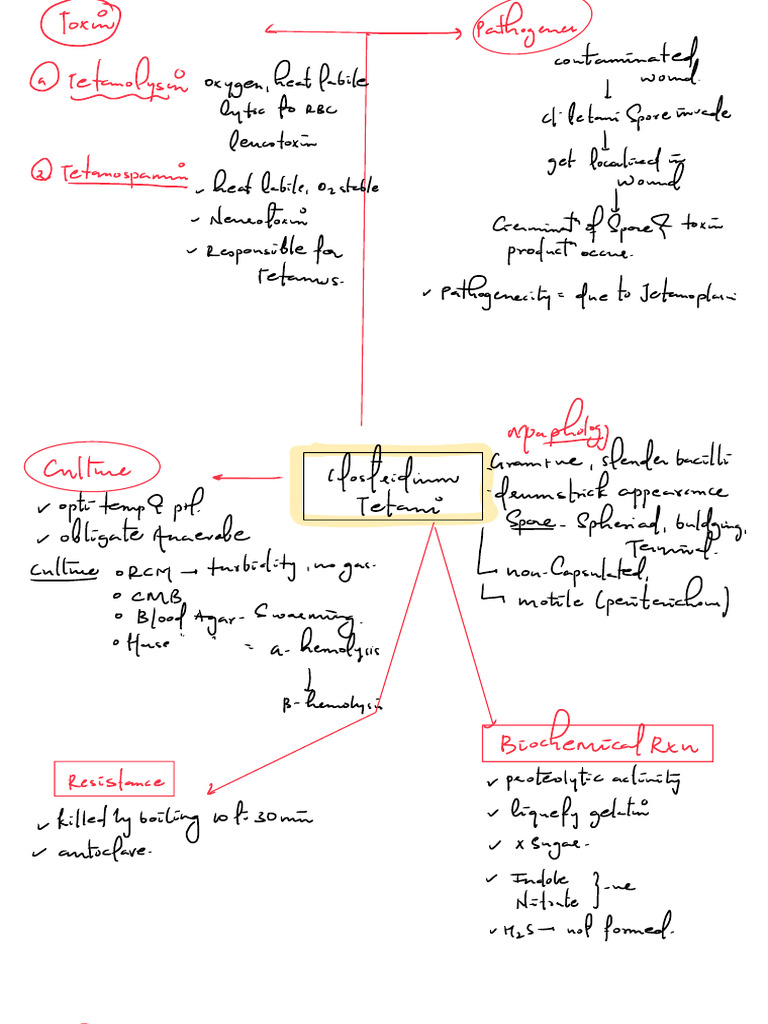 Toxin
① Tetanolysin oxygen, heat labile
lytic to RBC
leucotoxin
② Tetanospamin
✓ heat labile, O2 stable
✓ Neurotoxin
✓ Responsible for
tetanus.
Pathogenes
contaminated
wound.
↓
cl. tetani Spore invade
↓
get localised in
wound
↓
Germinatn of Spore & toxin
productn occure.
✓ Pathogenecity = due to
Clostridium
Tetani
Morphology
Gram +ve, slender bacilli
drumstrick appearence
Spore - Spherical, buldging,
Terminal.
non-Capsulated,
motile (peritrichous)
Culture
✓ opti temp & pH.
✓ obligate Anaerobe
Culture
o RCM → turbidity, no gas.
o CMB
o Blood Agar - Swarming.
o Horse " " = α- hemolysis
↓
β- hemolysis
Resistance
✓ killed by boiling 10 to 30 min
✓ autoclave.
Biochemical Rxn
✓ proteolytic activity
✓ liquefy gelatin
✓ x sugar.
✓ Indole
Nitrate } -ve
✓ H2S → not formed.